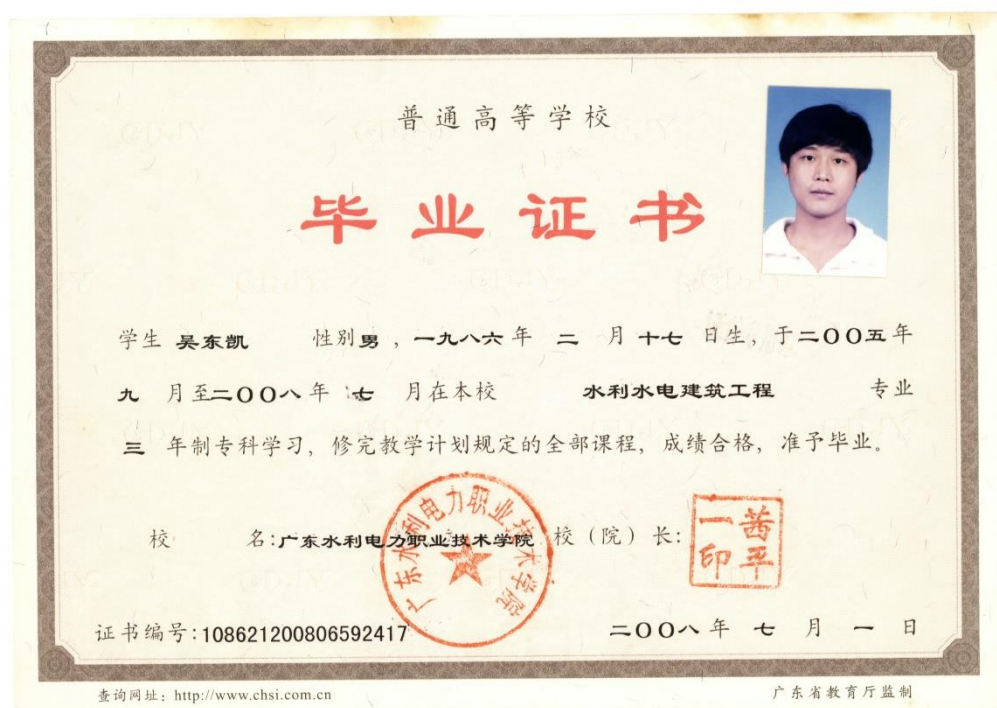 普通高等学校
毕业证书
学生 吴东凯 性别男，一九八六年 二 月 十七 日生，于二OO五年
九 月至二OO八年 七 月在本校 水利水电建筑工程 专业
三 年制专科学习，修完教学计划规定的全部课程，成绩合格，准予毕业。
广东水利电力职业技术学院
校 名：广东水利电力职业技术学院 校（院）长：
茜平一印
证书编号：108621200806592417
二OO八年 七 月 一 日
查询网址：http://www.chsi.com.cn
广东省教育厅监制